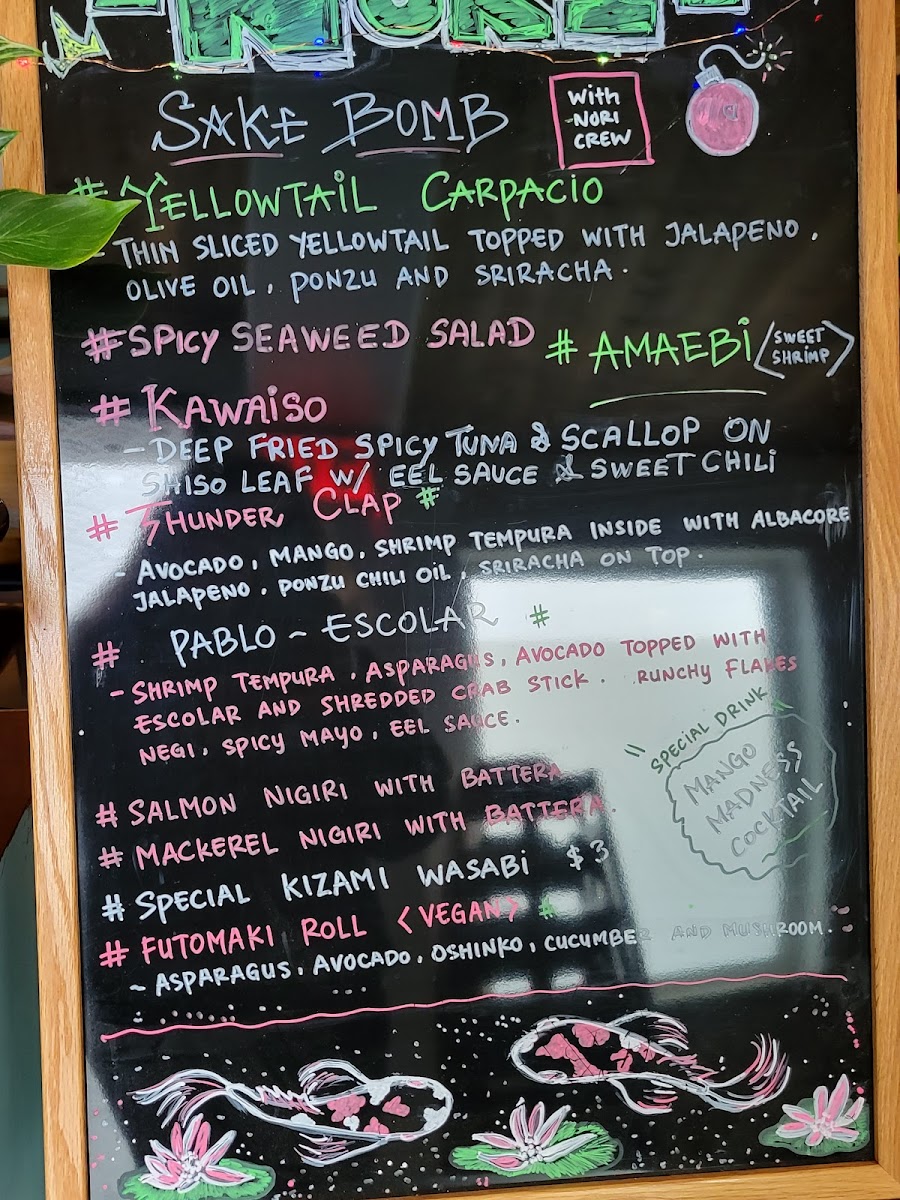 NORI
SAKE BOMB
with
NORI
CREW
# YELLOWTAIL CARPACIO
- THIN SLICED YELLOWTAIL TOPPED WITH JALAPENO,
OLIVE OIL, PONZU AND SRIRACHA.
#SPICY SEAWEED SALAD
# AMAEBI <SWEET
SHRIMP>
# KAWAISO
- DEEP FRIED SPICY TUNA & SCALLOP ON
SHISO LEAF W/ EEL SAUCE & SWEET CHILI
# THUNDER CLAP #
- AVOCADO, MANGO, SHRIMP TEMPURA INSIDE WITH ALBACORE
JALAPENO, PONZU CHILI OIL, SRIRACHA ON TOP.
# PABLO - ESCOLAR #
- SHRIMP TEMPURA, ASPARAGUS, AVOCADO TOPPED WITH
ESCOLAR AND SHREDDED CRAB STICK. RUNCHY FLAKES
NEGI, SPICY MAYO, EEL SAUCE.
SPECIAL DRINK
MANGO
MADNESS
COCKTAIL
# SALMON NIGIRI WITH BATTERA
# MACKEREL NIGIRI WITH BATTERA.
# SPECIAL KIZAMI WASABI $3
# FUTOMAKI ROLL <VEGAN> #
~ ASPARAGUS, AVOCADO, OSHINKO, CUCUMBER AND MUSHROOM.